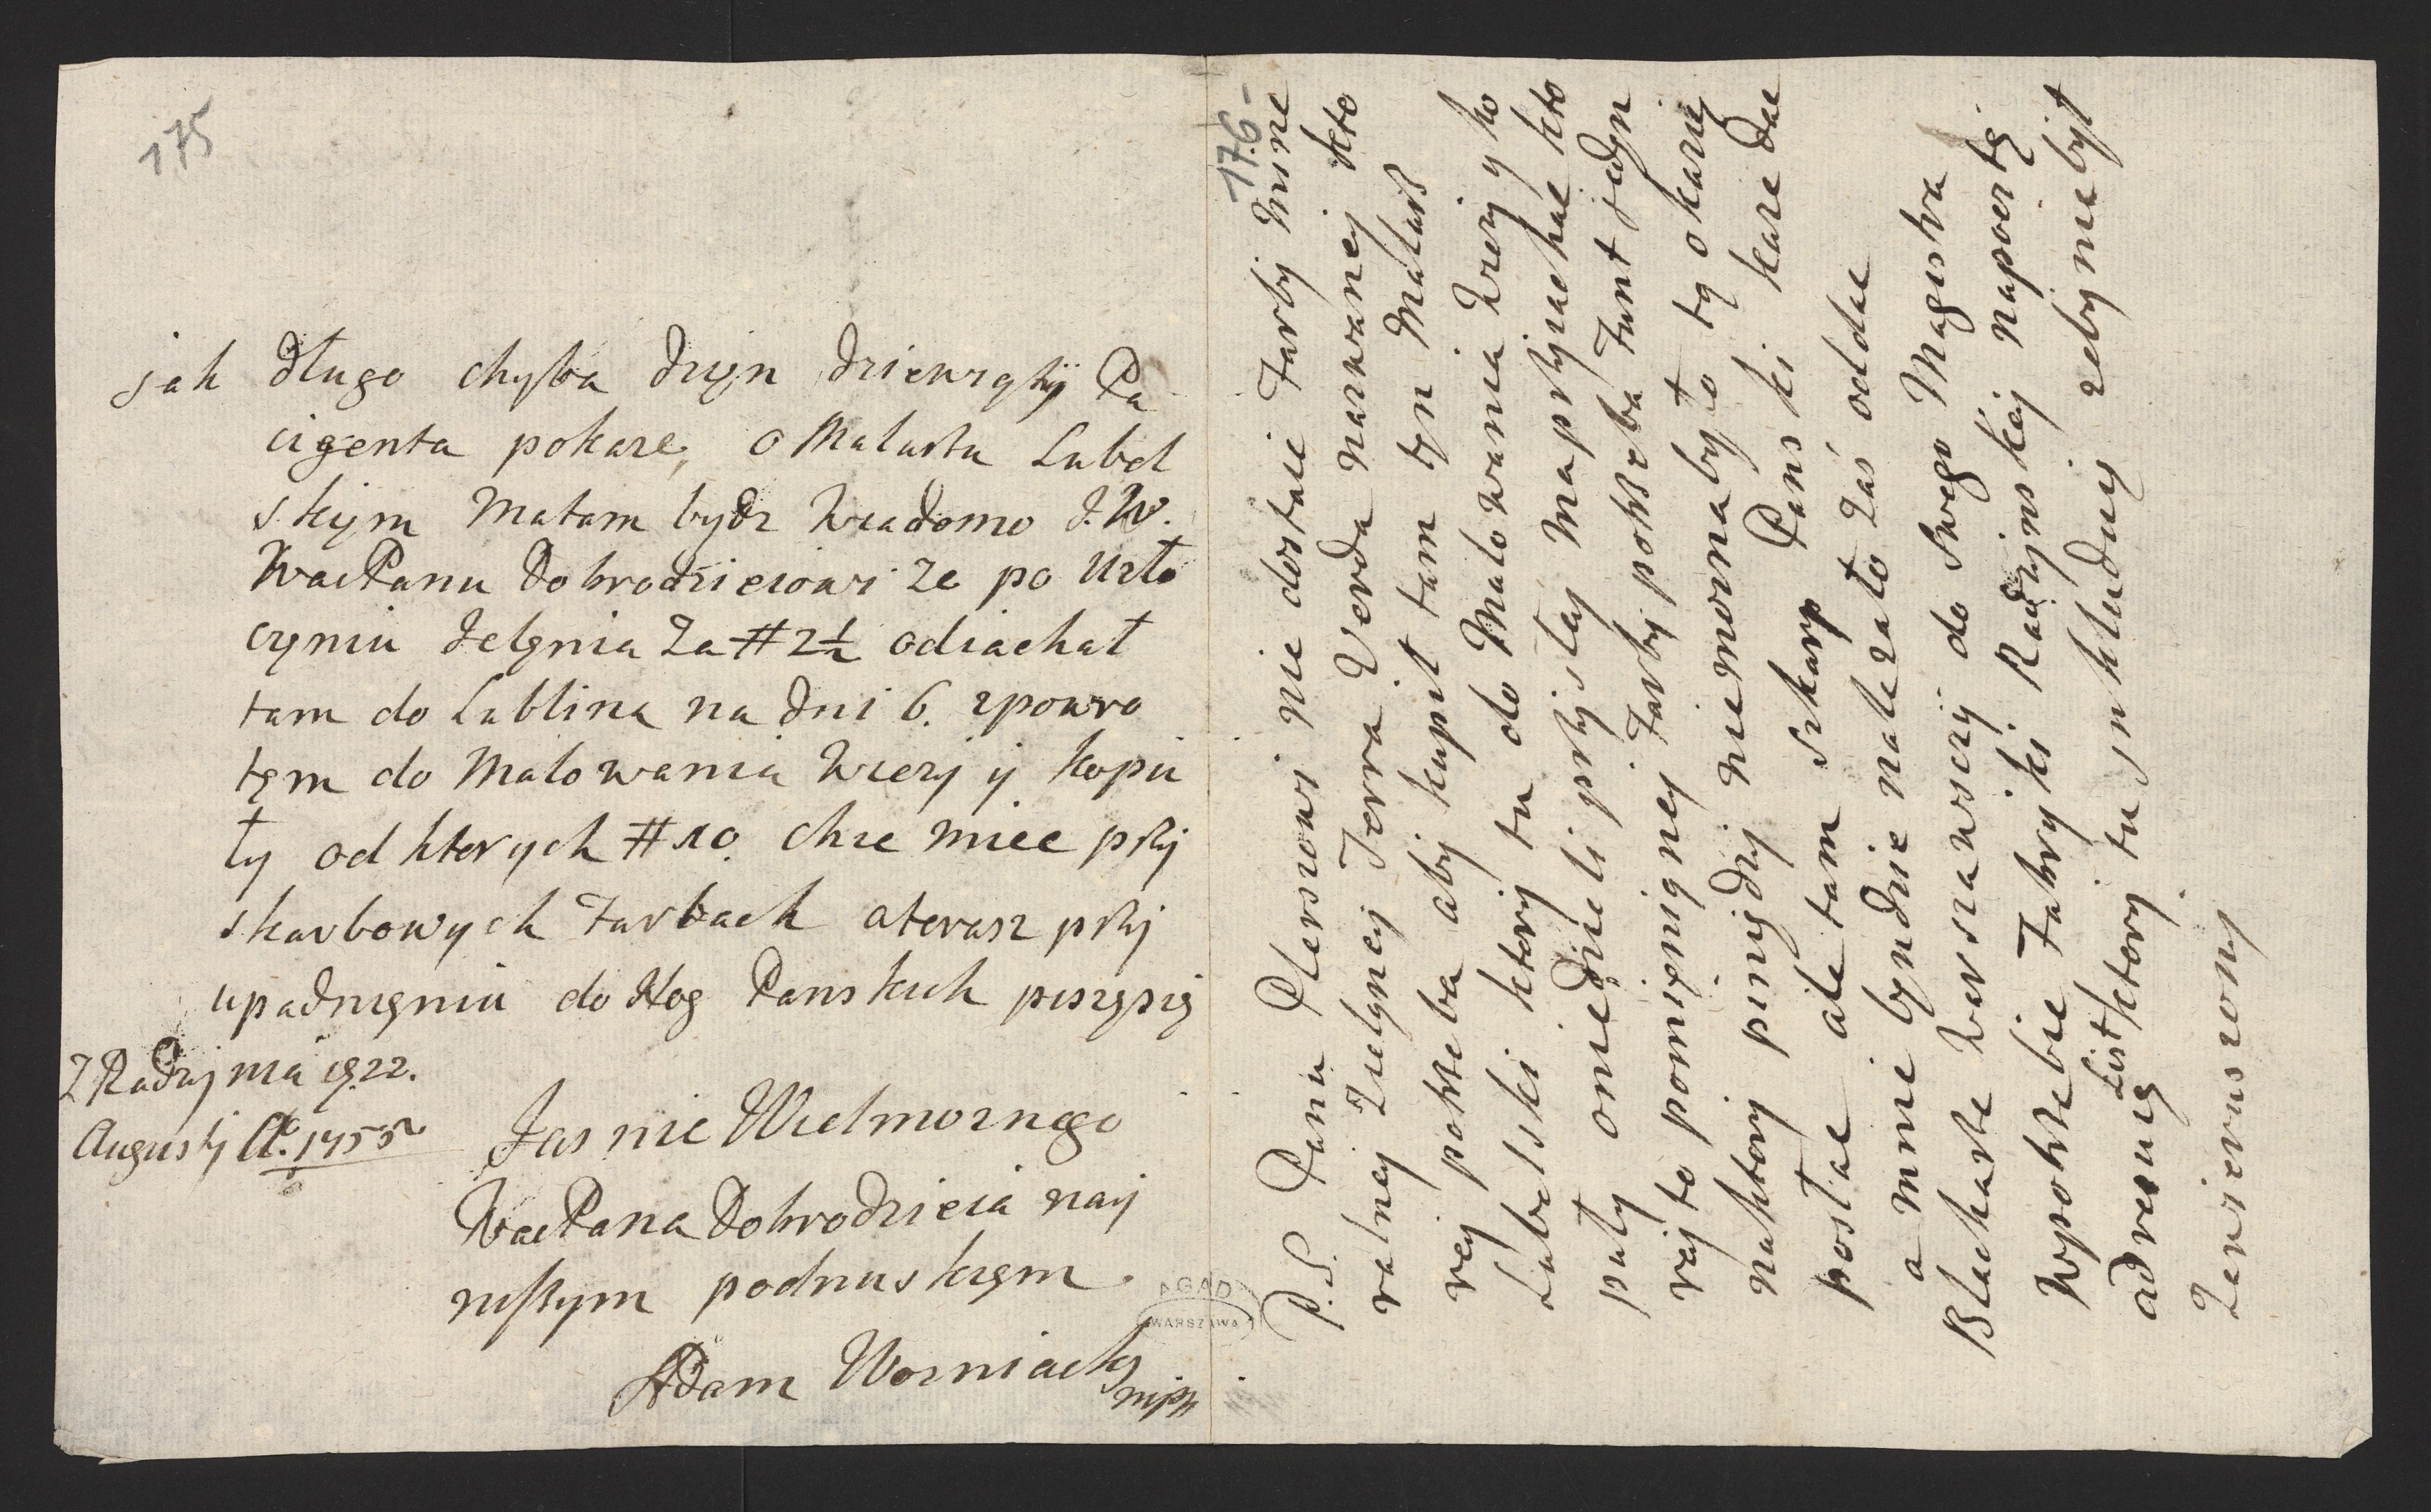 175
jak długo chyba dzięn dziewzęty Pa
cięenta pokaze, o Malarzu Lubel
skiym Matam bydz Wiadomo J.W.
WacPanu Dobrodzieiowi ze po Uzło
cęniu Jelęnia Za # 2½ odiachał
tam do Lublina na dni 6. zpowro
tęm do Malowania Wiezy y kopu
ły od ktorych # 10. chce miec przy
skarbowych Farbach aterasz przy
upadnięniu do Nog Panskich piszęsię
Z Radzynia 19. 22.
Augusty Ao. 1755
Jasnie Wielmoznego
WacPana Dobrodzieia nay
niszym podnuskięm
Adam Wozniacky
mpp
176 -
P. S. Panu Plerszowi nie dostaie Farby Mine
ralney Zielęney Terra Verda nazwaney kto
rey potrzeba aby kupił tam tęn Malarz
Lubelski ktory tu do Malowania Wiezy y ko
puły oniedzieli przyszley ma przyiachac kto
rey to pomięnięney Farby potrzeba Funt jedęn
naktory piniędzy niemoznabyło tę okazię
posłac ale tam Szkarp Panski kaze dac
a mnie bęndzie nalezało zaś oddac
Blacharze Warszawsczy do Swego Magistra
Wpotrzebie Fabryki Radzynskiey napocztę
adresuię List ktory tu ynkluduię zeby nie był
Zawieruszony
AGAD
WARSZAWA